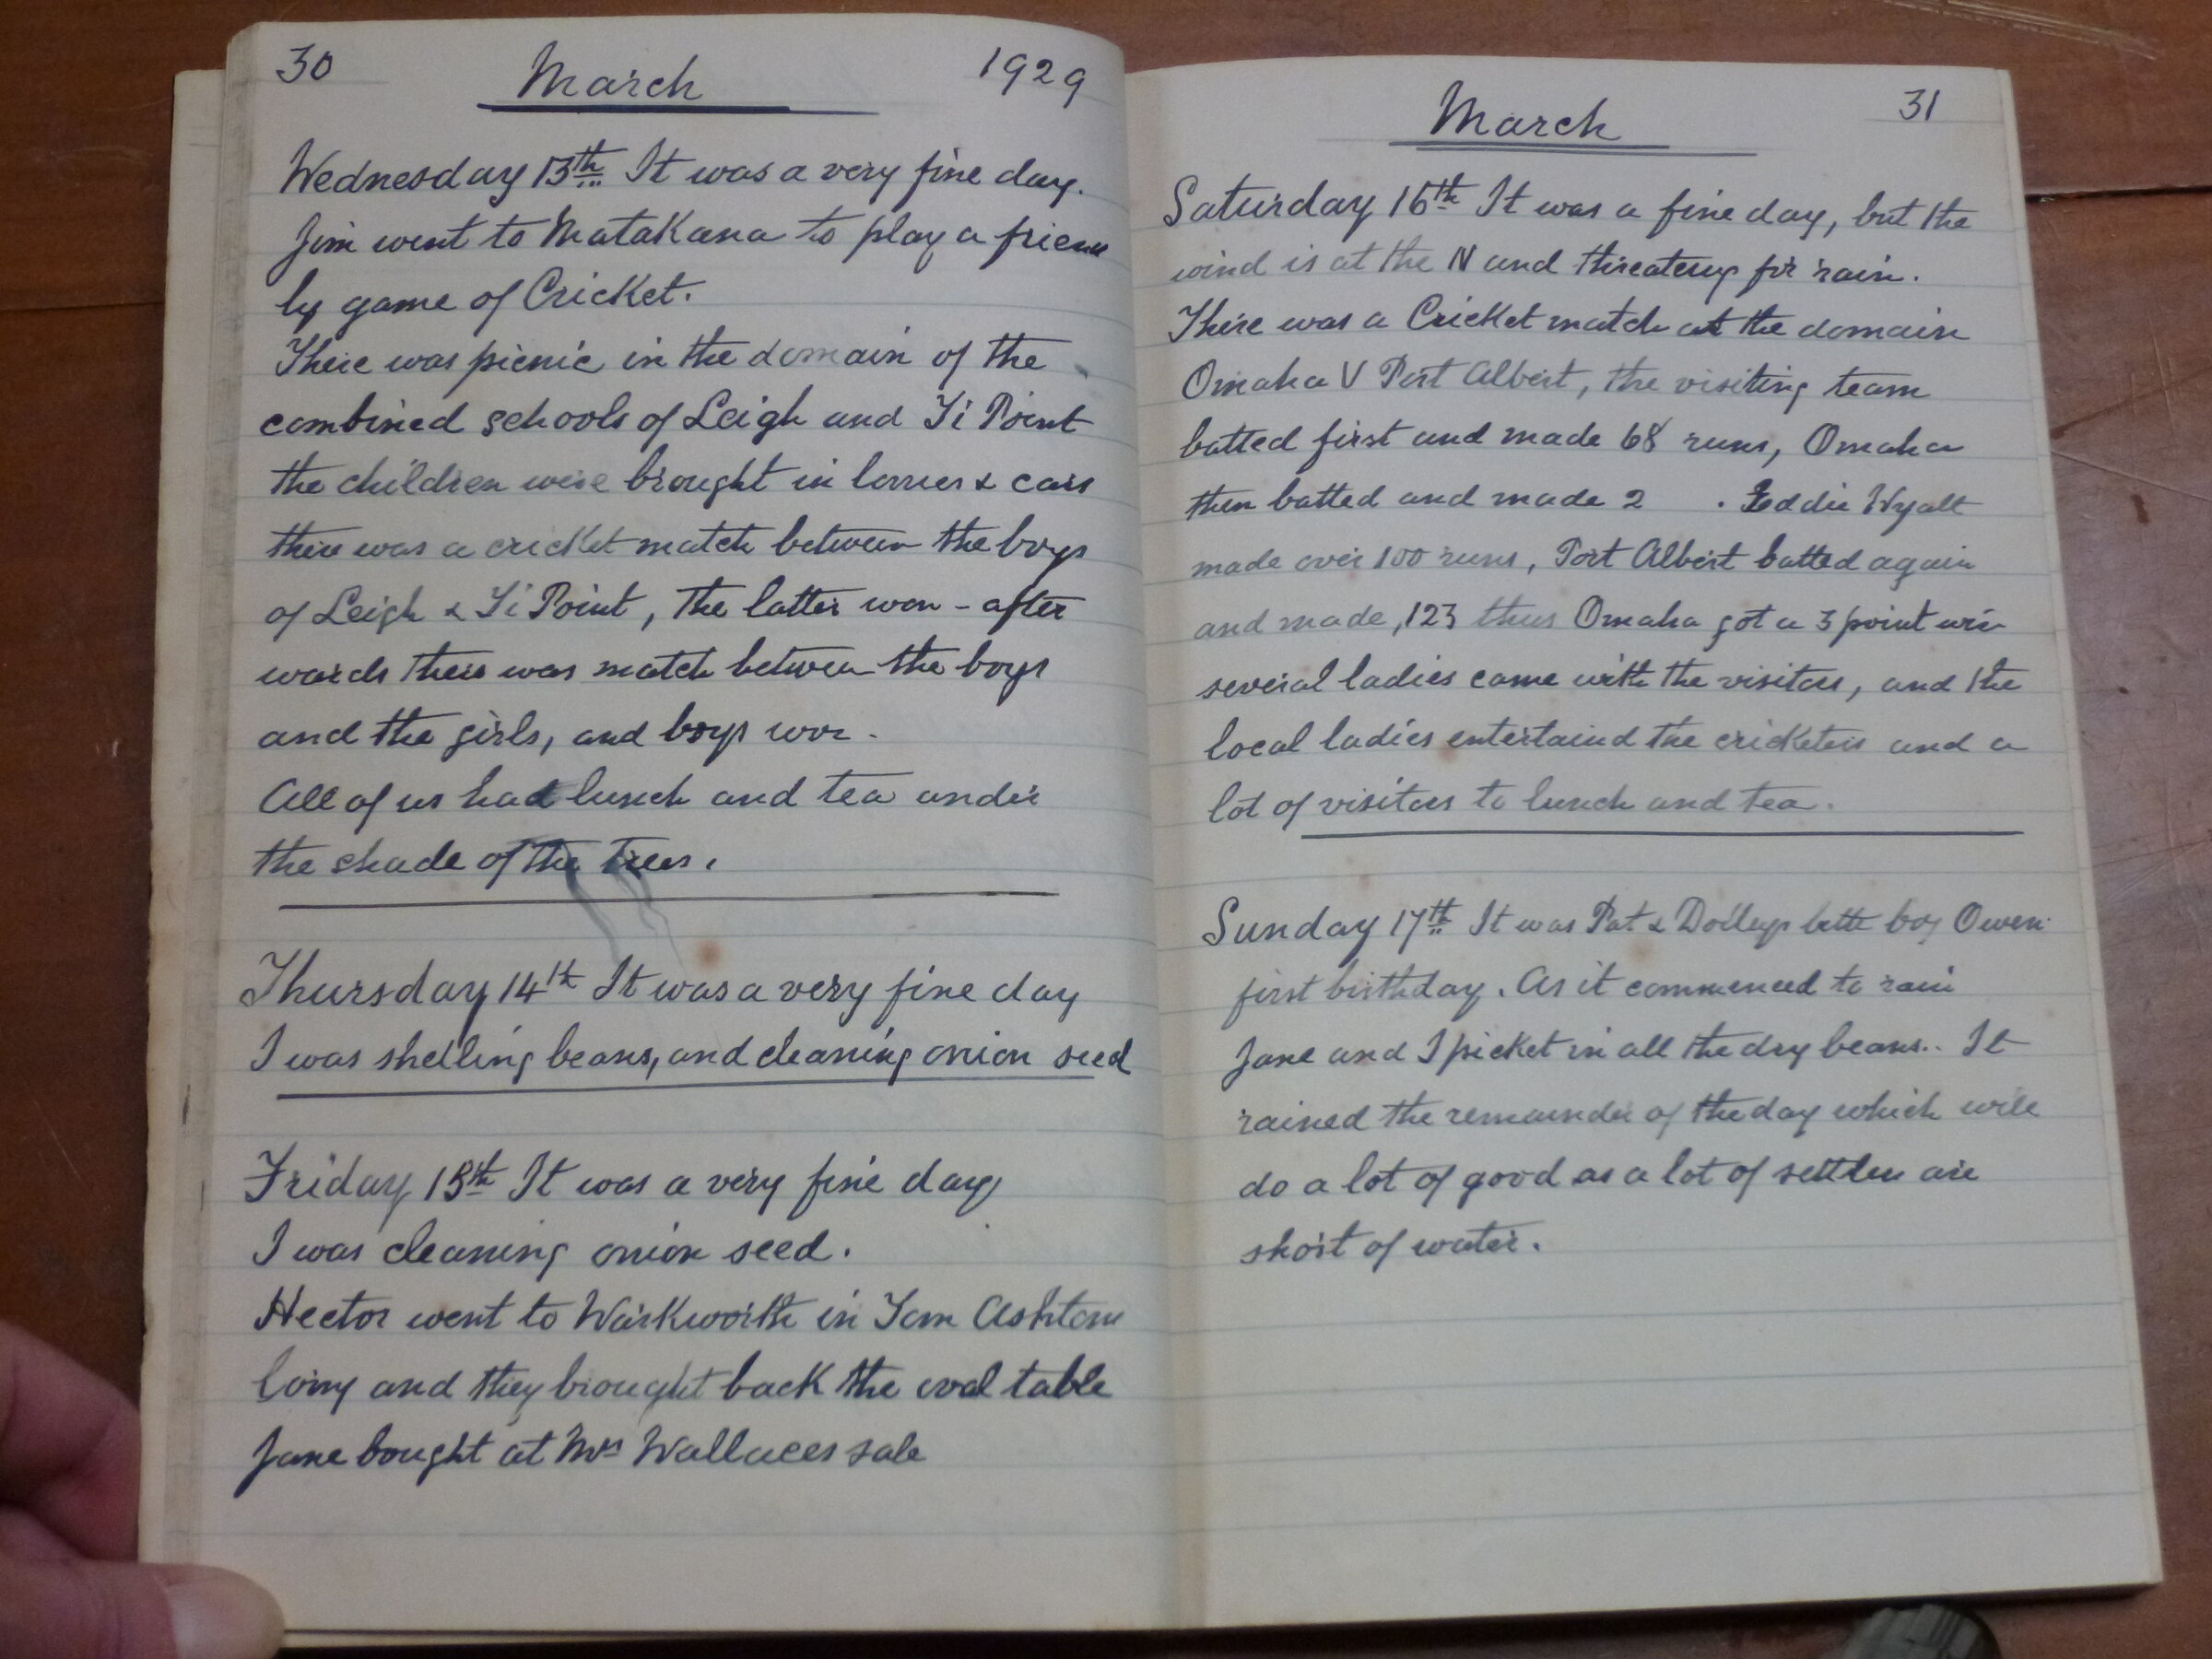 30 March 1929
Wednesday 13th It was a very fine day.
Jim went to Matakana to play a friend
ly game of Cricket.
There was picnic in the domain of the
combined schools of Leigh and Ti Point
the children were brought in lorries & cars
there was a cricket match between the boys
of Leigh & Ti Point, the latter won - after
wards there was match between the boys
and the girls, and boys won.
All of us had lunch and tea under
the shade of the trees.
Thursday 14th It was a very fine day
I was shelling beans, and cleaning onion seed
Friday 15th It was a very fine day,
I was cleaning onion seed.
Hector went to Warkworth in Tom Ashtons
lorry and they brought back the oval table
Jane bought at Mrs Wallaces sale
March 31
Saturday 16th It was a fine day, but the
wind is at the N and threateng for rain.
There was a Cricket match at the domain
Omaha V Port Albert, the visiting team
batted first and made 68 runs, Omaha
then batted and made 2 . Eddie Wyatt
made over 100 runs, Port Albert batted again
and made, 123 thus Omaha got a 3 point win
several ladies came with the visitors, and the
local ladies entertaind the cricketers and a
lot of visitors to lunch and tea.
Sunday 17th It was Pat & Dolleys little boy Owen
first birthday. As it commenced to rain
Jane and I picket in all the dry beans.. It
rained the remainder of the day which will
do a lot of good as a lot of settlers are
short of water.